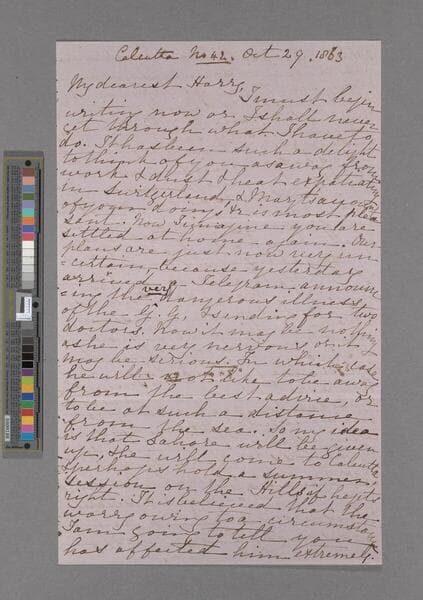 Calcutta No 42. Oct 29. 1863
My dearest Harry,
I must begin
writing now or I shall never
get through what I have to
do. It has been such a delight
to think of you as away from
work & dust & heat
in Switzerland, & Mary's
of your doings & is most
sent. Now I imagine you are
settled at home again. Our
plans are just now very un
=certain because yesterday
arrived a Telegram announ
=cing the very dangerous illness
of the G. G. & sending for two
doctors. Now it may be nothing
as he is very nervous or it
may be serious. In which case
he will not like to be away
from the best advice, or
to be at such a distance
from the sea. So my idea
is that Lahore will be given
up, & he will come to Calcutta
& perhaps hold a summer
session on the Hills if he gets
right. It is believed that the
worry owing to a circumstance
I am going to tell you
has affected him extremely.